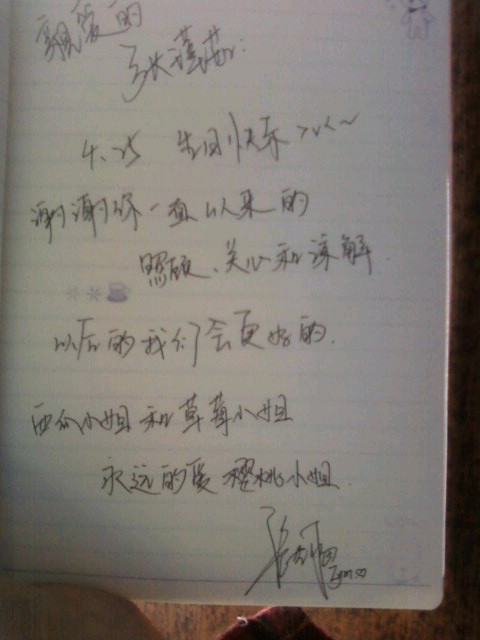 亲爱的
张蓓蓓:
4.25 生日快乐>v<~
谢谢你一直以来的
照顾、关心和谅解
以后的我们会更好的.
西瓜小姐和草莓小姐
永远的爱樱桃小姐.